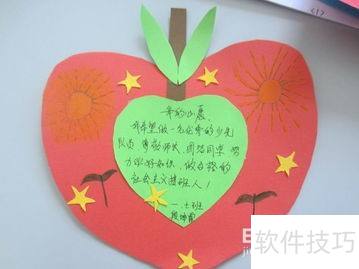 我的心愿
我希望做一名优秀的少先
队员 尊敬师长、团结同学、努
力学好知识,做合格的
社会主义接班人!
一.七班
软件技巧